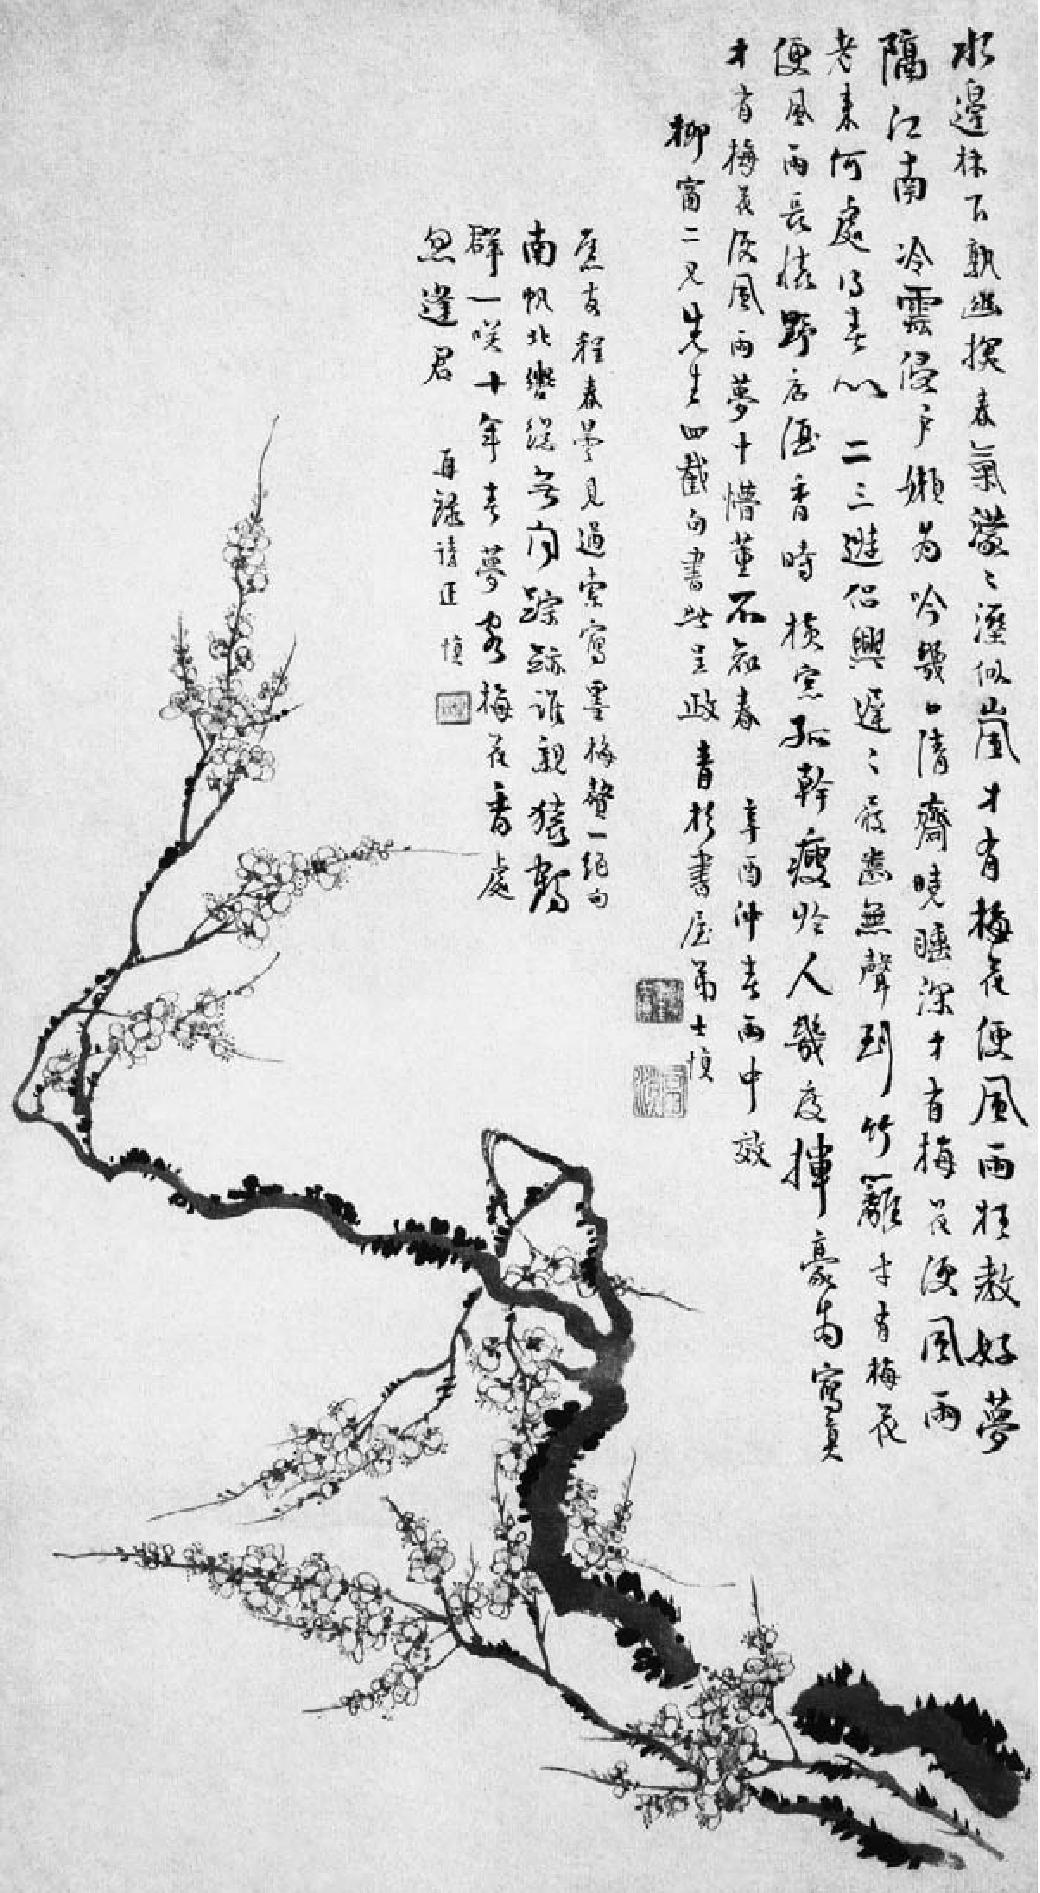 水邊林下孰幽探春氣濛〻溼似嵐才有梅花便風雨枉教好夢
隔江南冷雲侵戶嬾為吟幾日清齋曉睡深才有梅花便風雨
老來何處得春心二三遊侶興遲〻屐齒無聲到竹籬才有梅花
便風雨長橋野店酒香時橫窓孤幹瘦於人幾度揮豪為寫真
才有梅花便風雨夢中懵董不知春 辛酉仲春雨中效
柳窗二兄先生四截句書此呈政 青杉書屋弟士慎
舊友程春曇見過索寫墨梅贅一絕句
南帆北轡從無定踪跡誰親猿鶴
群一咲十年春夢客梅花香處
忽逢君 再錄請正 慎